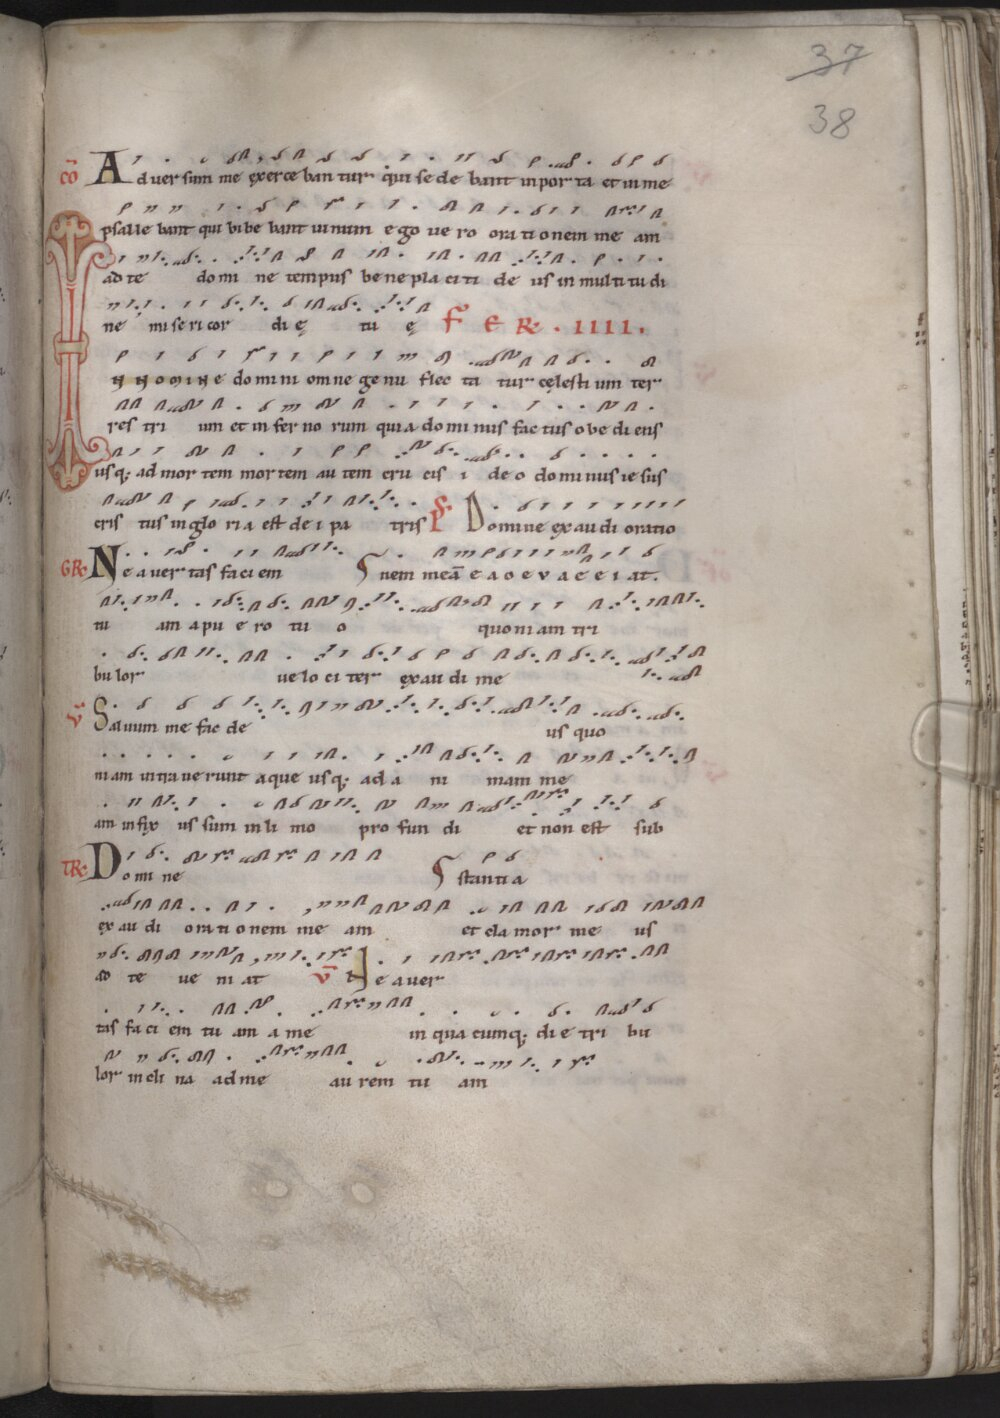 37
38
cō Aduersum me exerce ban tur qui se de bant in por ta et in me
psalle bant qui bibe bant uinum e go ue ro ora ti onem me am
ad te do mi ne tempus be ne pla ci ti de us in multi tu di
ne mi se ri cor di ę tu ę F E R . IIII.
IN NOMINE domini omne genu flec ta tur cęlesti um ter
res tri um et in fer no rum qui a do mi nus fac tus o be di ens
usq; ad mor tem mor tem au tem cru cis i de o do mi nus ie sus
cris tus in glo ri a est de i pa tris Ps Domine exau di oratio
GR Ne a uer tas fa ci em nem meā e a o e v a e e i at.
tu am a pu e ro tu o quo ni am tri
bu lor ue lo ci ter exau di me
V Saluum me fac de us quo
niam intra uerunt aque usq; ad a ni mam me
am infix us sum in li mo pro fun di et non est sub
TR Do mi ne stanti a
ex au di ora ti onem me am et cla mor me us
ad te ue ni at V Ne a uer
tas fa ci em tu am a me in qua cumq; di e tri bu
lor in cli na ad me au rem tu am